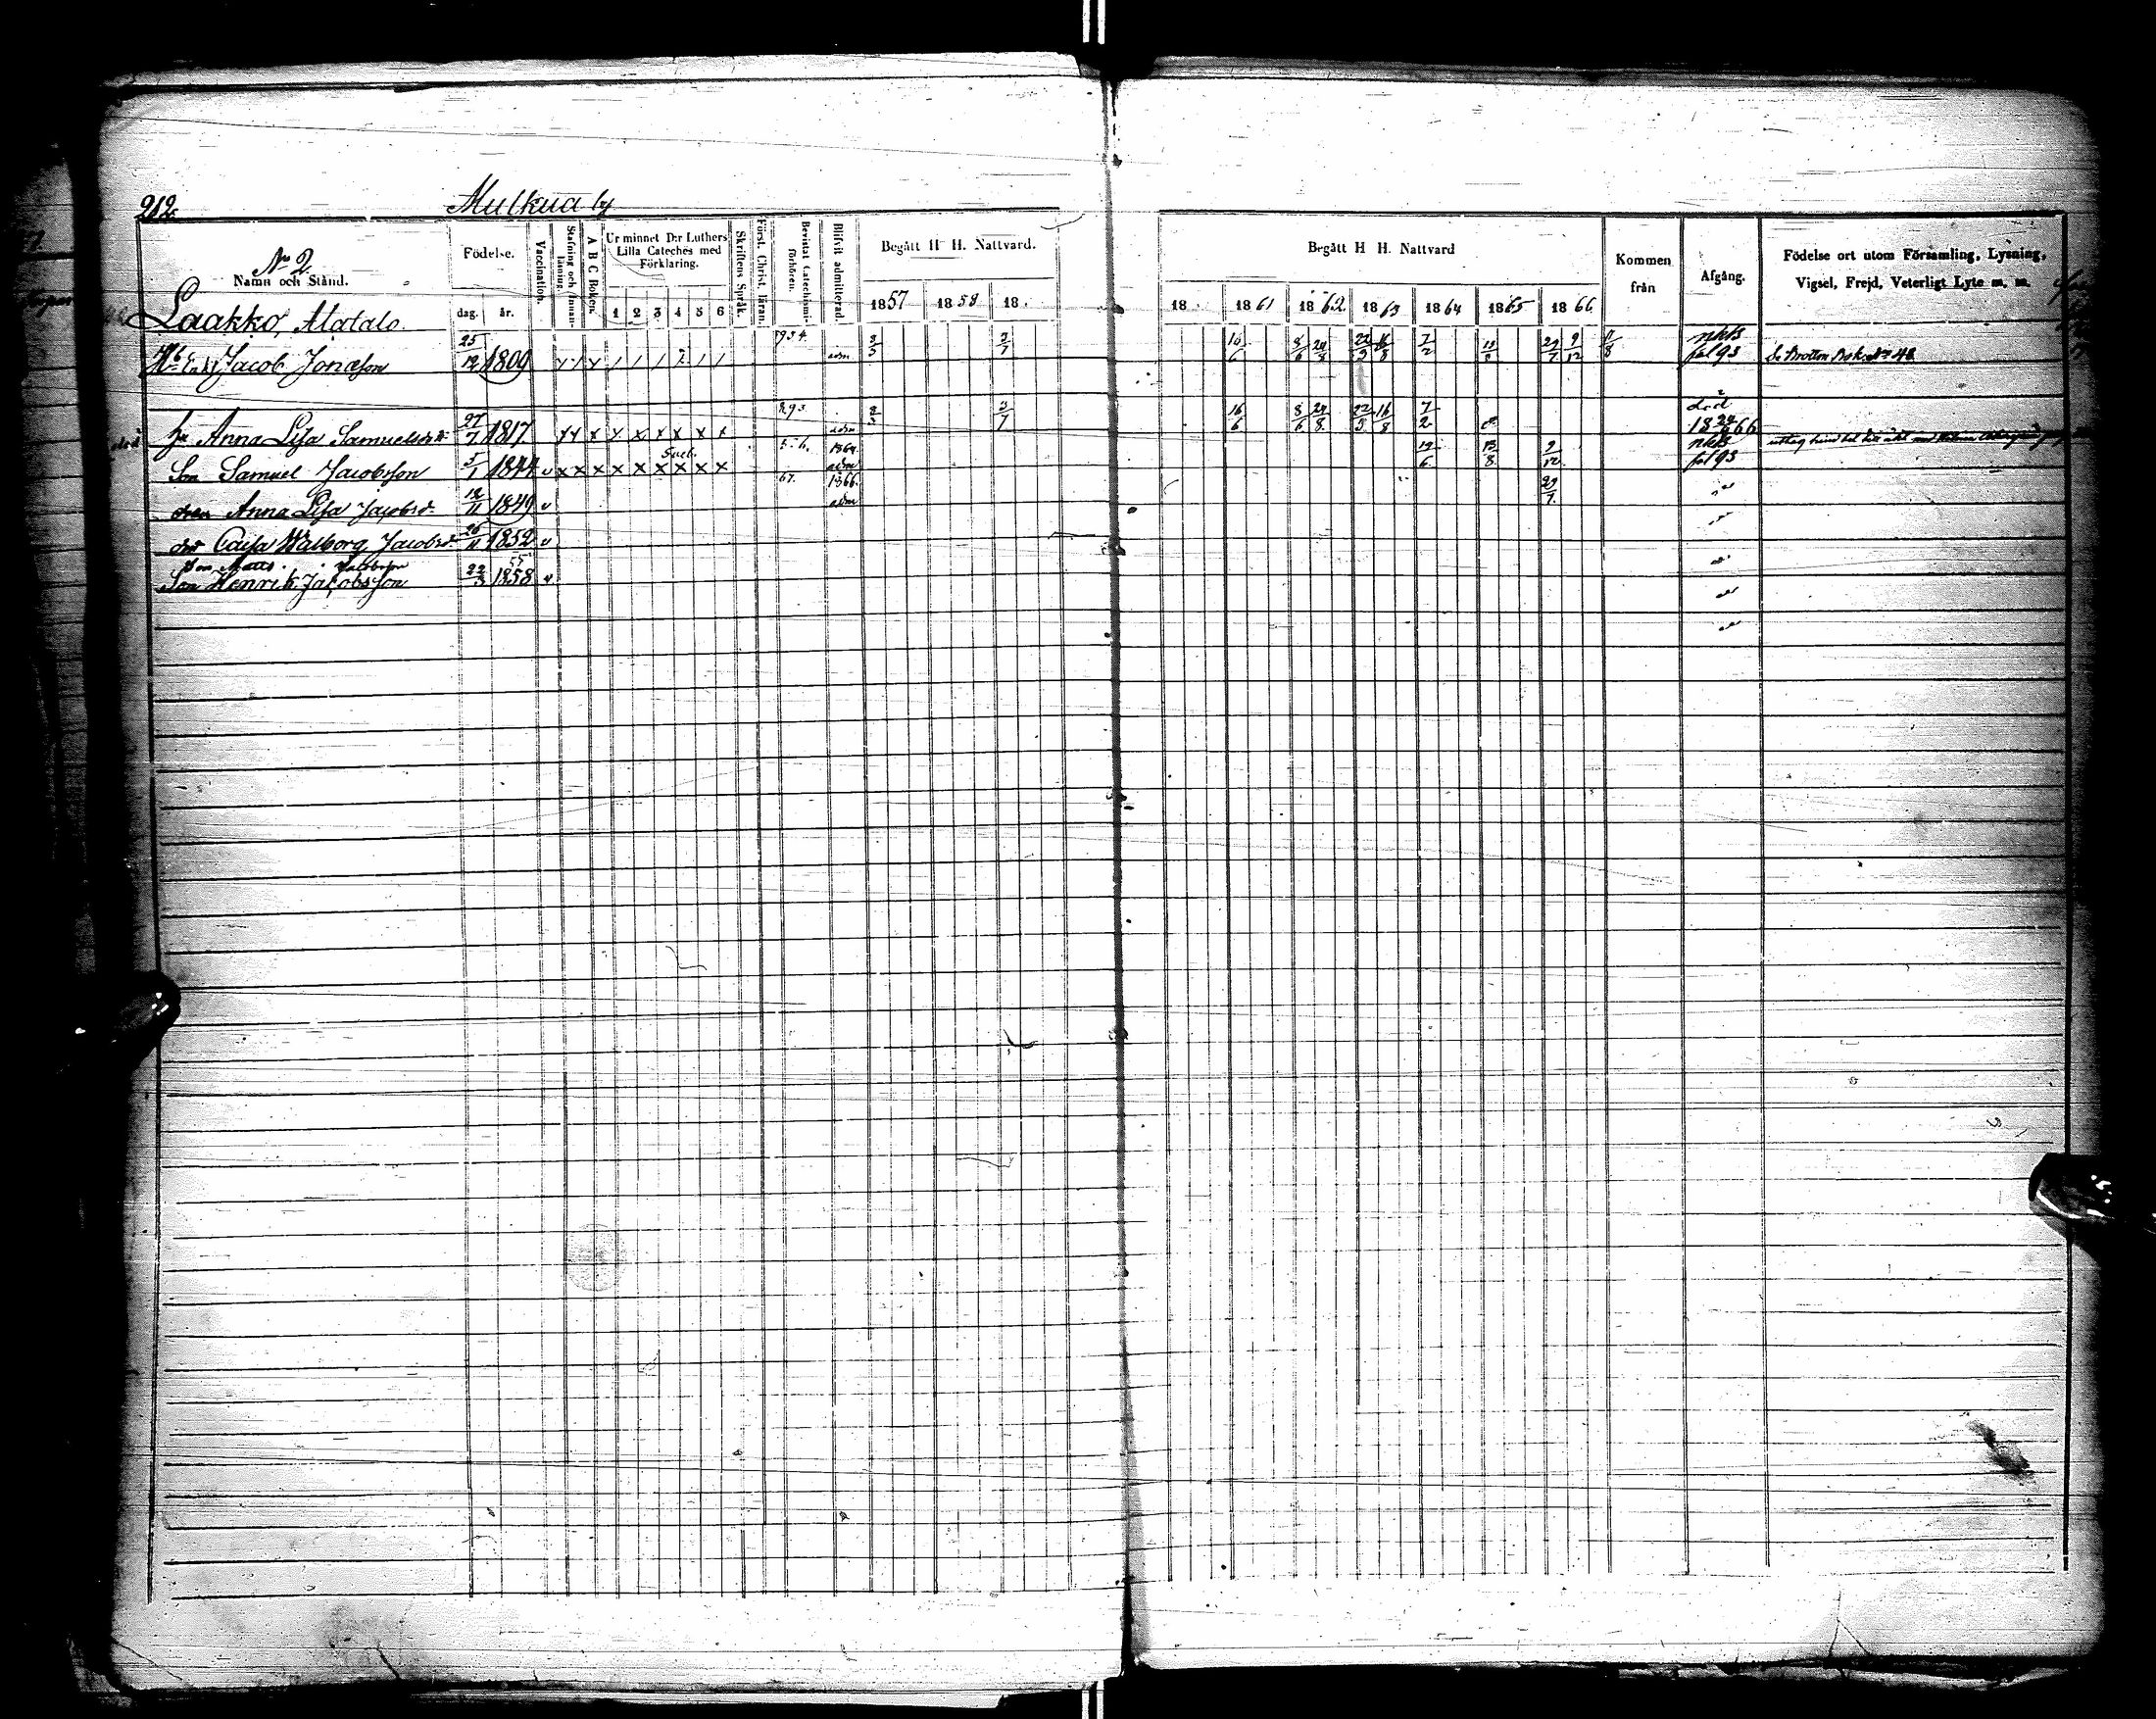 212
Mulkua by
No 2
Namn och Stånd.
Födelse.
dag.
år.
Vaccination.
Stafning och Innanläsning.
A B C Boken.
Ur minnet D:r Luthers Lilla Cateches med Förklaring.
1 2 3 4 5 6
Skriftens Språk.
Först. Christ. läran.
Bevistat Catechismi-förhören.
Blifvit admitterad.
Begått H H. Nattvard.
1857 1858 18
Begått H H. Nattvard
18 1861 1862 1863 1864 1865 1866
Kommen från
Afgång.
Födelse ort utom Församling, Lysning, Vigsel, Frejd, Veterligt Lyte m. m.
Laakko, Alatalo.
Jacob Jonasson 25/12 1809 adm 3/7 16/6 7/2 nkB fol 93
Se Brottm Bok No 48
död hu Anna Lisa Samuelsdr 27/7 1817 adm 3/7 16/6 22/3 16/8 7/2 död 1866
Son Samuel Jacobsson 5/1 1844 v Svel. 1864 adm 19/6 13/8 9/12 nkB fol 93
dren Anna Lisa Jacobsdr 12/11 1849 v 67. 1866 adm 29/7
dtr Caisa Walborg Jacobsdr 26/11 1852 v
Son Matts Jacobsson 55
Son Henrik Jacobsson 22/3 1858 v